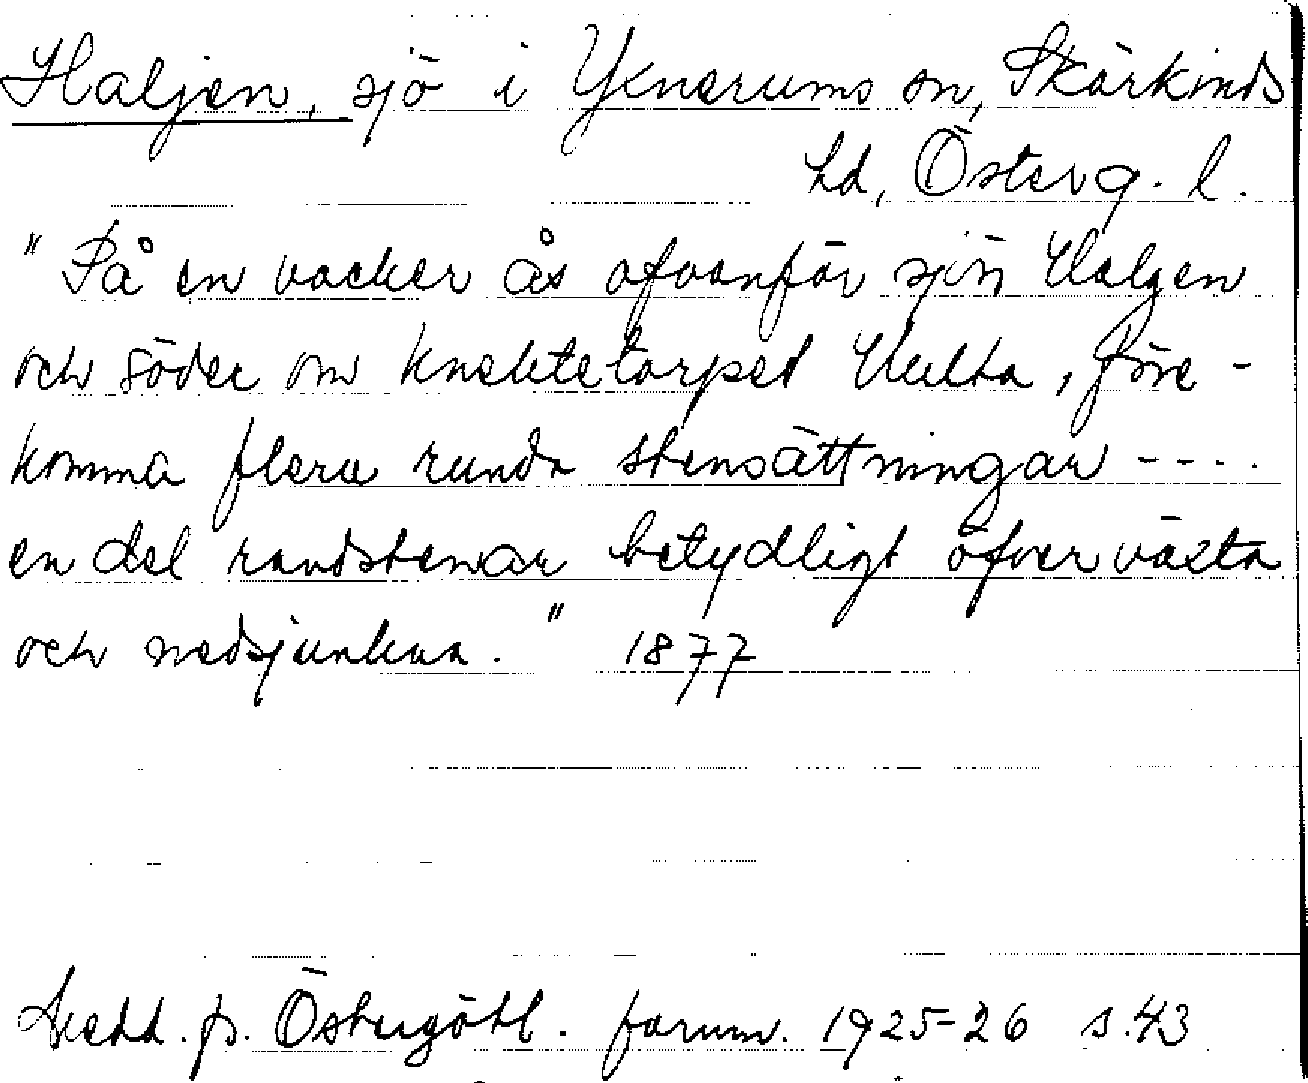 Haljen, sjö i Yxnerums sn, Skärkinds
hd, Österg. l.
"På en vacker ås ofvanför sjön Halgen
och söder om knektetorpet Hulta, före-
komma flera runda stensättningar ----
en del randstenar betydligt öfverväxta
och nedsjunkna." 1877
Medd. fr. Östergötl. fornm. 1925-26 s.43